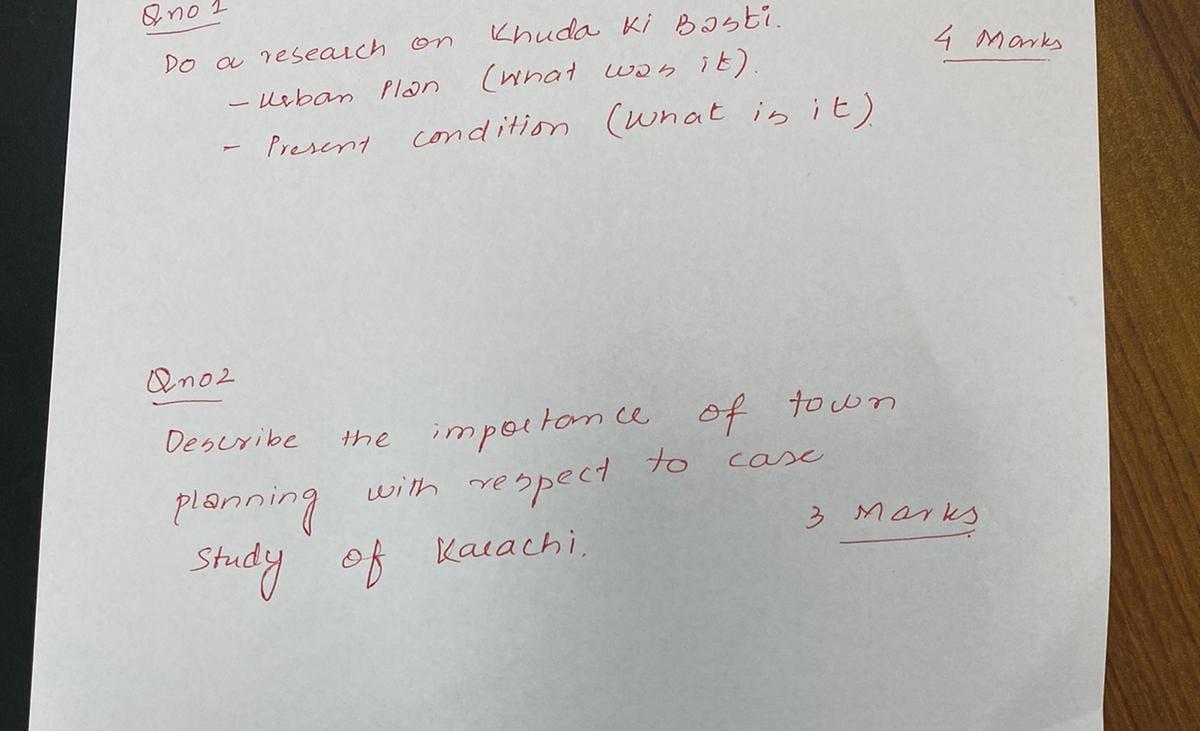 Qno 1
Do a research on Khuda Ki Basti.
4 Marks
- Urban Plan (what was it).
- Present condition (what is it).
Qno2
Describe the importance of town
planning with respect to case
study of Karachi.
3 Marks